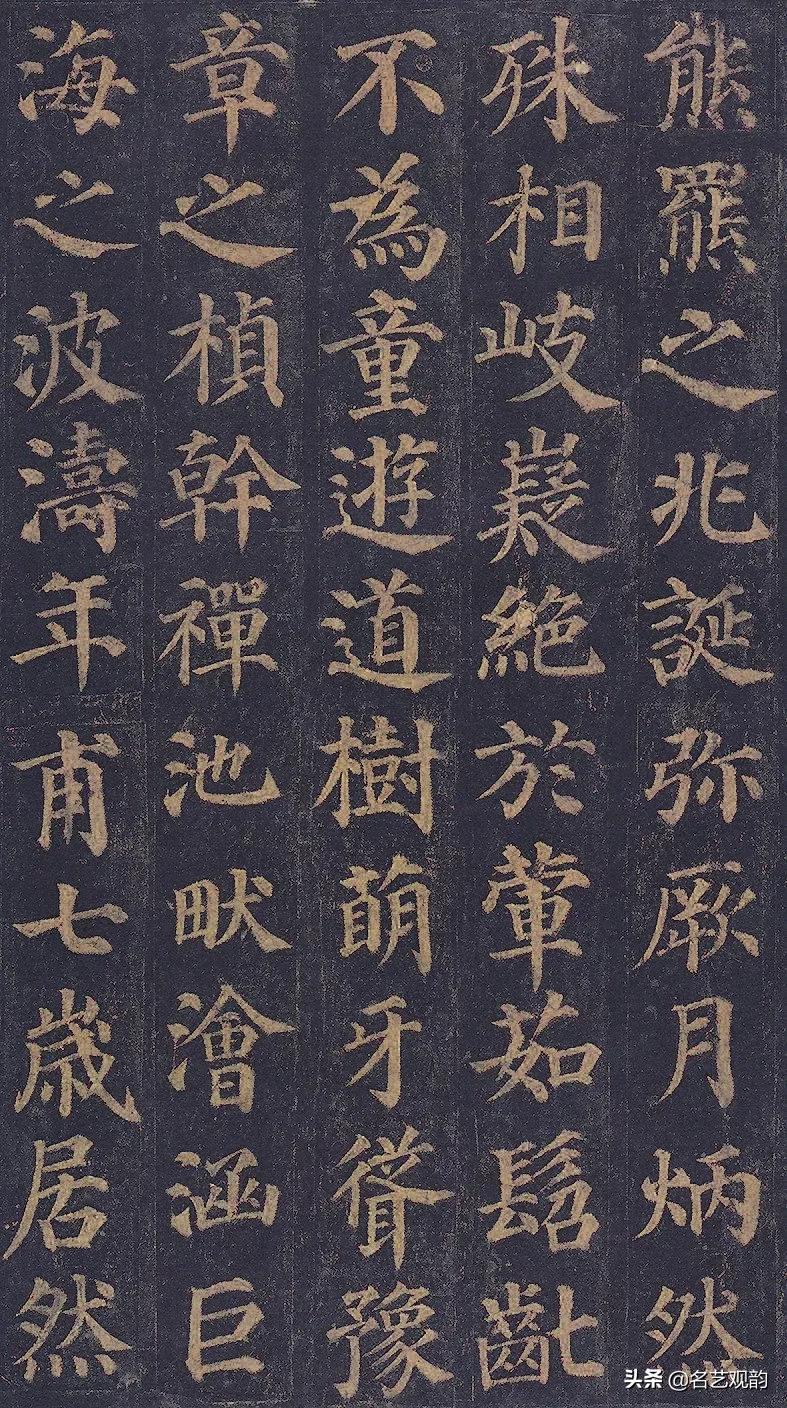 熊羆之兆誕弥厥月炳然
殊相岐嶷絶於葷茹髫齔
不為童遊道樹萌牙聳豫
章之楨幹禪池畎澮涵巨
海之波濤年甫七歲居然
头条 @名艺观韵